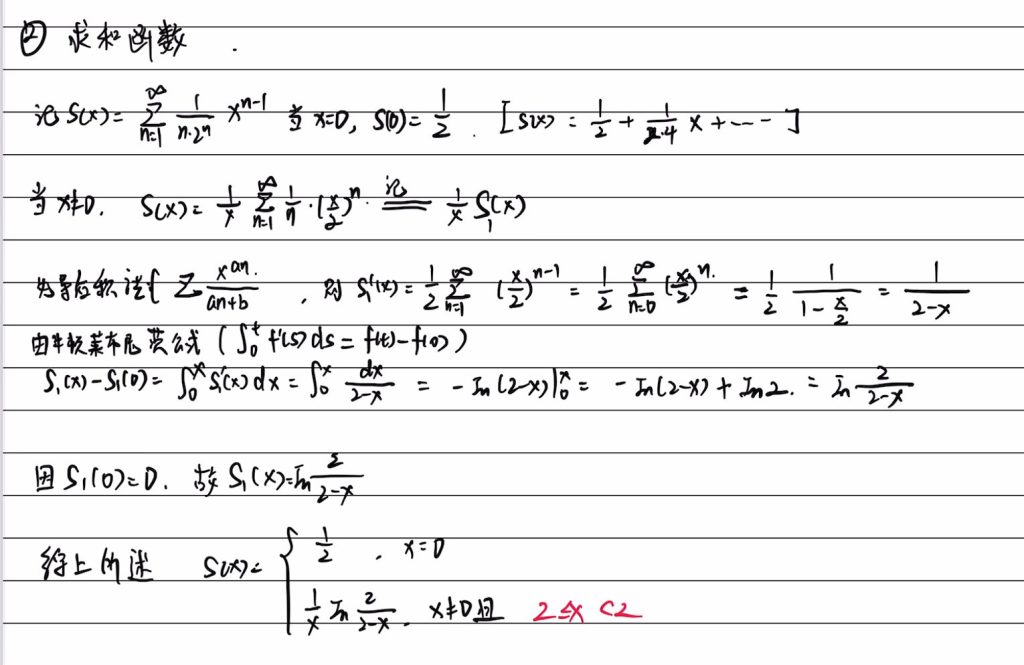 ② 求和函数.
记 S(x) = ∑_{n=1}^{∞} \frac{1}{n·2^n} x^{n-1} 当 x=0, S(0) = \frac{1}{2}. [S(x) = \frac{1}{2} + \frac{1}{2·4} x + ---- ]
当 x≠0. S(x) = \frac{1}{x} ∑_{n=1}^{∞} \frac{1}{n}·(\frac{x}{2})^n 记 == \frac{1}{x} S_1(x)
先导后积法{ ∑ \frac{x^{an}}{an+b}, 则 S_1'(x) = \frac{1}{2} ∑_{n=1}^{∞} (\frac{x}{2})^{n-1} = \frac{1}{2} ∑_{n=0}^{∞} (\frac{x}{2})^n. = \frac{1}{2} \frac{1}{1-\frac{x}{2}} = \frac{1}{2-x}
由牛顿莱布尼茨公式 (∫_0^t f'(s)ds = f(t)-f(0))
S_1(x)-S_1(0) = ∫_0^x S_1'(x)dx = ∫_0^x \frac{dx}{2-x} = -ln(2-x)|_0^x = -ln(2-x)+ln2. = ln\frac{2}{2-x}
因 S_1(0)=0. 故 S_1(x)=ln\frac{2}{2-x}
综上所述 S(x) = { \frac{1}{2}, x=0
\frac{1}{x} ln\frac{2}{2-x}. x≠0且 2≤x<2